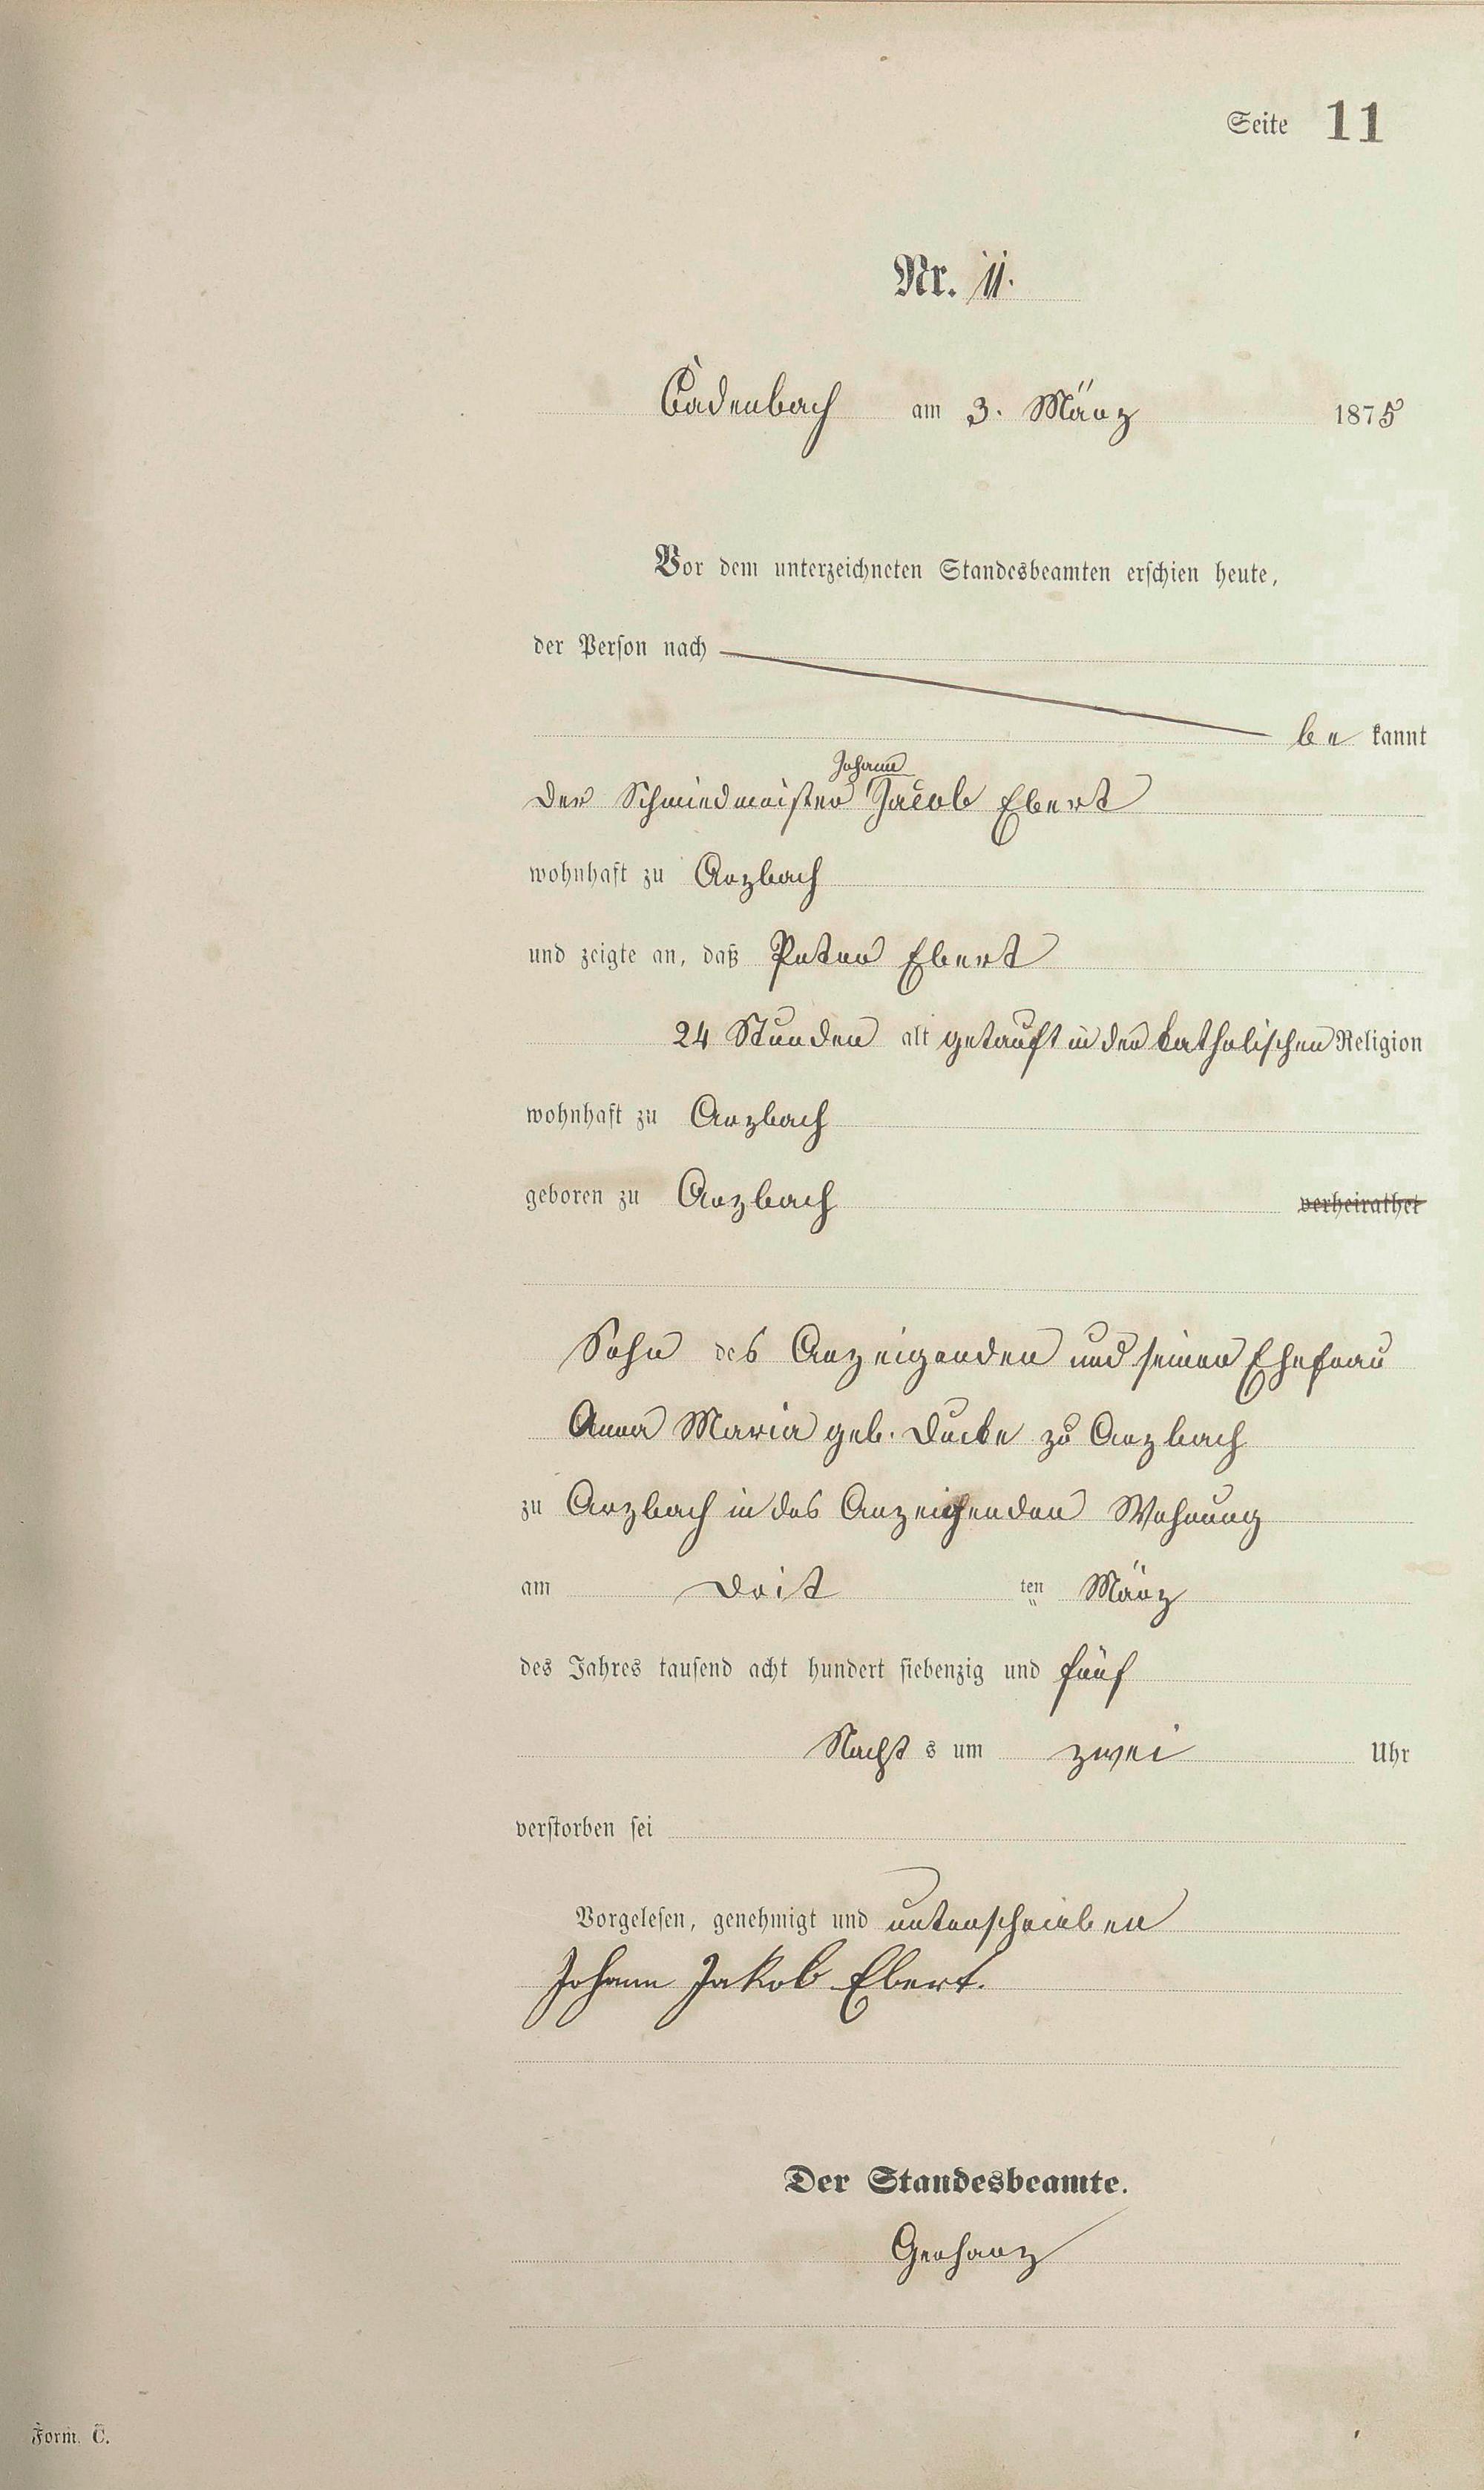 Seite 11
Nr. 11.
Cadenbach am 3. März 1875
Vor dem unterzeichneten Standesbeamten erschien heute,
der Person nach
be kannt
Johann
der Schmiedmeister Jacob Ebert
wohnhaft zu Arzbach
und zeigte an, daß Peter Ebert
24 Stunden alt getauft in der katholischen Religion
wohnhaft zu Arzbach
geboren zu Arzbach verheirathet
Sohn des Anzeigenden und seiner Ehefrau
Anna Maria geb. Ducke zu Arzbach
zu Arzbach in des Anzeigenden Wohnung
am Drit ten März
des Jahres tausend acht hundert siebenzig und fünf
Nacht s um zwei Uhr
verstorben sei
Vorgelesen, genehmigt und unterschrieben
Johann Jakob Ebert.
Der Standesbeamte.
Gerharz
Form. C.